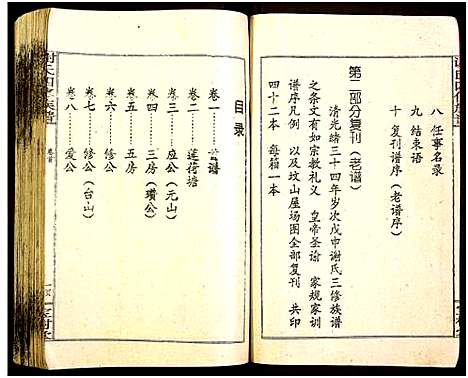 八 任事名录
九 结束语
十 复刊谱序（老谱序）
第二部分复刊（老谱）
清光绪三十四年岁次戊申谢氏三修族谱
之条文有如宗教礼义 皇帝圣谕 家规家训
谱序凡例 以及坟山屋场图全部复刊 共印
四十二本 每箱一本
目录
卷一 首谱
卷二 莲荷塘
卷三 应公（元山）
卷四 三房（瓒公）
卷五 五房
卷六 修公
卷七 修公（台山）
卷八 爱公
卷首